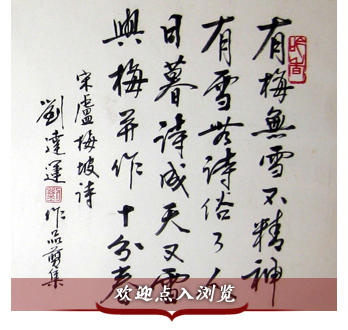 有梅無雪不精神
有雪無詩俗了人
日暮詩成天又雪
與梅并作十分春
宋盧梅坡詩
劉達運作品剪集
欢迎点入浏览